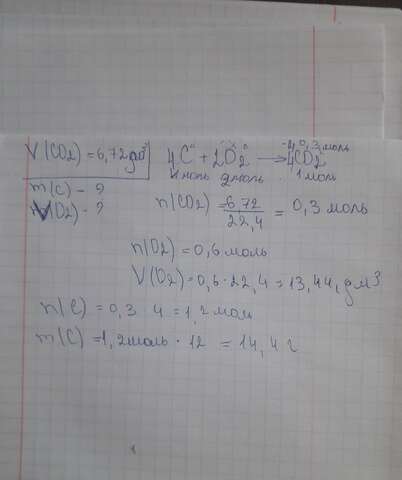 V(CO2) = 6,72 дм³
4C + 2O2 → 4CO2
0,3 моль
4 моль 2 моль 1 моль
m(C) - ?
V(O2) - ?
n(CO2) = 6,72 / 22,4 = 0,3 моль
n(O2) = 0,6 моль
V(O2) = 0,6 · 22,4 = 13,44 дм³
n(C) = 0,3 4 = 1,2 мол
m(C) = 1,2 моль · 12 = 14,4 г